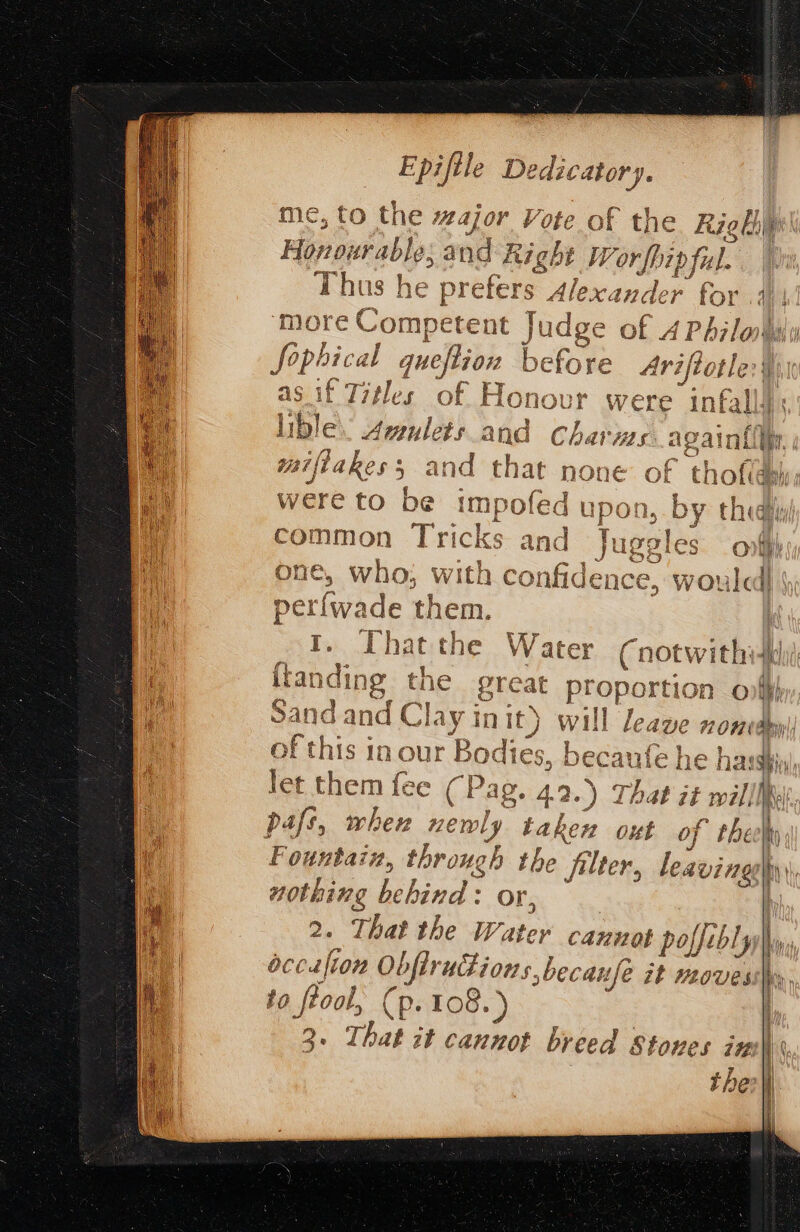 Epiſtle Dedicatory.
me, to the major Vote of the Right
Honourable, and Right Worſhipful.
Thus he prefers Alexander for a
more Competent Judge of A Philo-
ſophical queſtion before Ariſtotle:
as if Titles of Honour were infal-
lible Amulets and Charms againſt
miſtakes; and that none of thoſe
were to be impoſed upon, by the
common Tricks and Juggles of
one, who, with confidence, would
perſwade them.
1. That the Water (notwith-
ſtanding the great proportion of
Sand and Clay in it) will leave none
of this in our Bodies, becauſe he has
let them ſee (Pag. 42.) That it will
paſs, when newly taken out of the
Fountain, through the filter, leaving
nothing behind: or,
2. That the Water cannot poſſibly
occaſion Obſtructions, becauſe it moves
to ſtool, (p. 108.)
3. That it cannot breed Stones in
the